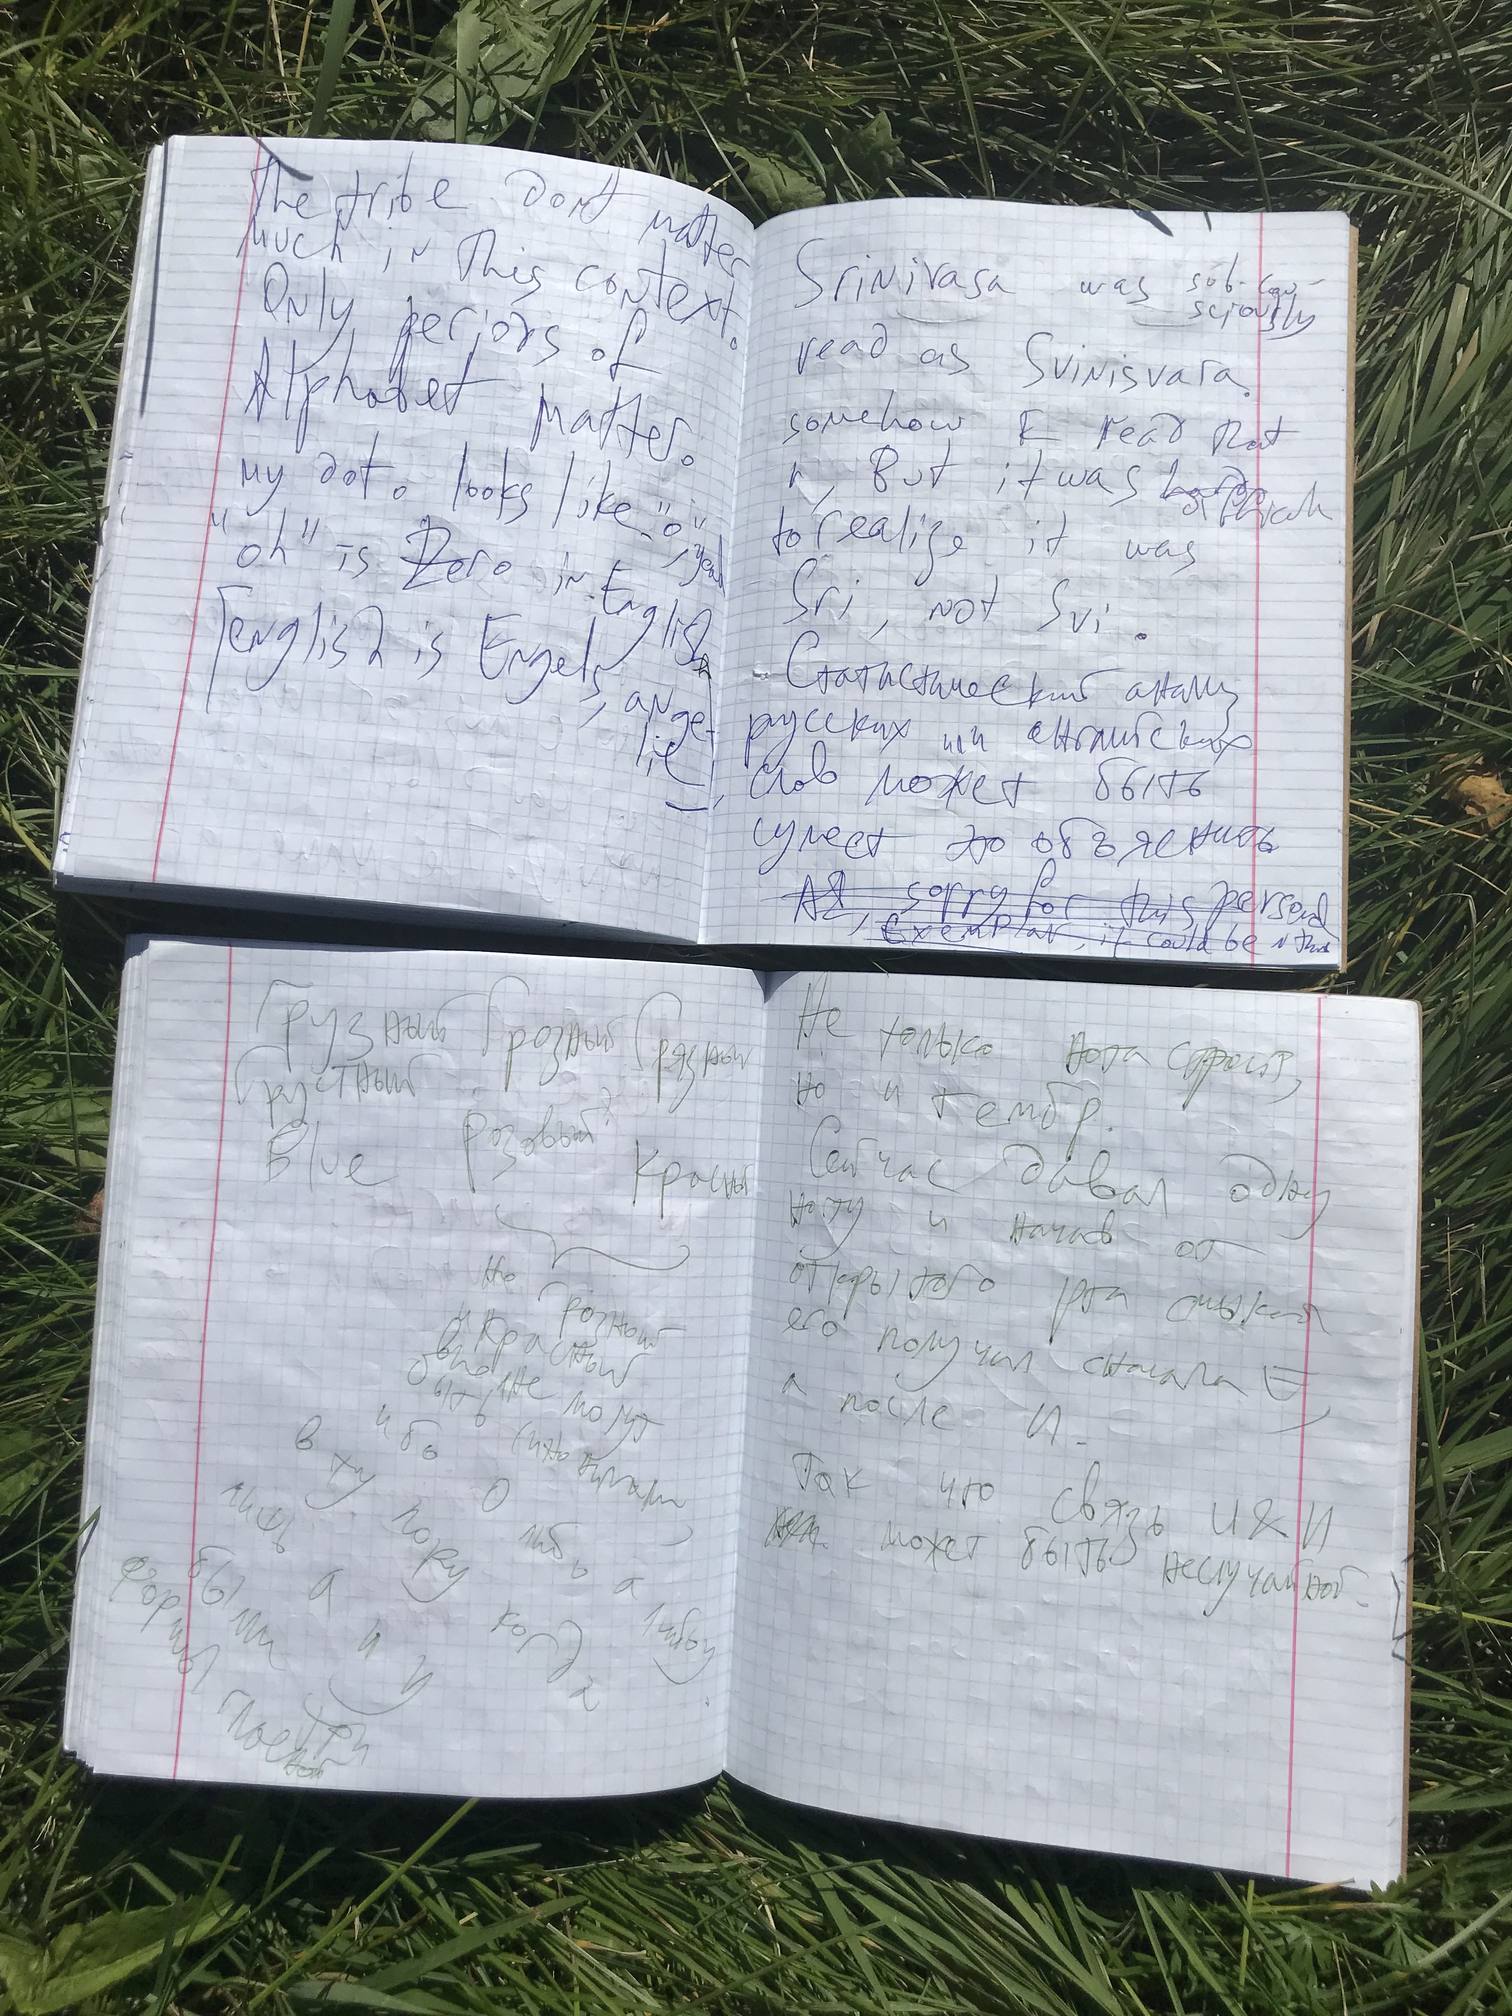 The tribe dont matter
much in this context.
Only periods of
Alphabet matter.
my dot. looks like "o",
"oh" is Zero in English,
English is Engels, ange-
lic
Srinivasa was sub-con-
sciously
read as Svinisvara.
somehow I read that
n, But it was
to realize it was
Sri, not Svi.
Статистический анализ
русских или английских
слов может быть
сумеет это объяснить
AЯ, sorry for this personal
exemplar, it could be n
Грузный Грозный Грязный
Грустный
розовый?
Blue Красный
но грозный
и красный
вполне могут
быть синонимами,
ибо О либо а
в ту пору когда
лишь а и и
были
формы гласной
Не только нота строит,
но и тембр.
Сейчас давал одну
ноту и начав от
открытого рта смыкая
его получил сначала Е,
а после И.
Так что связь И & И
может быть неслучайной.